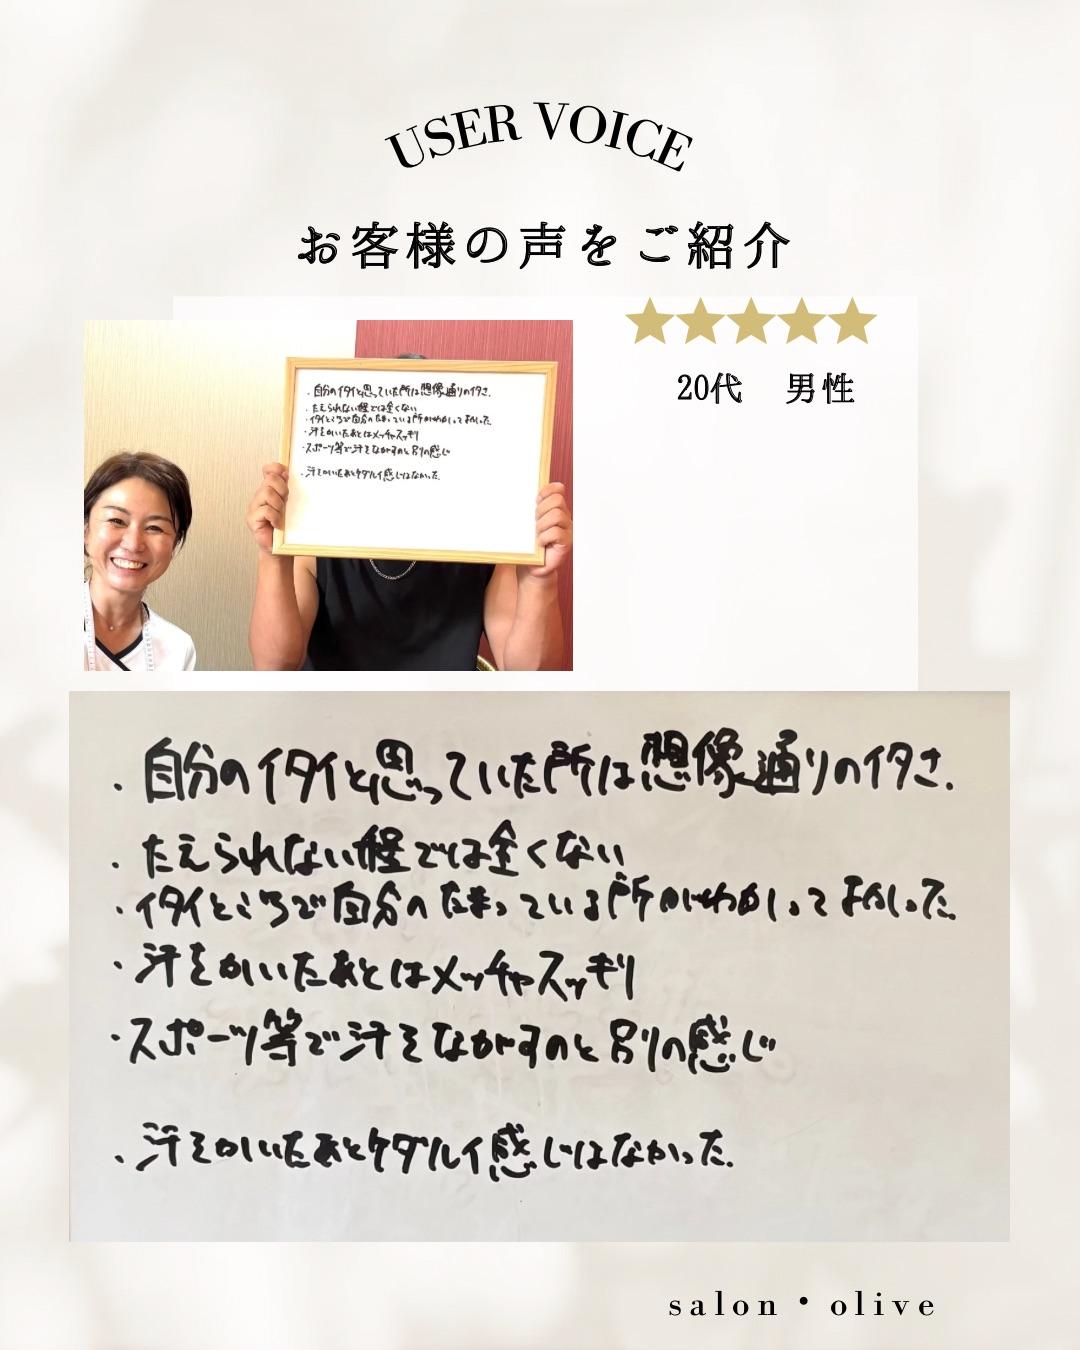 USER VOICE
お客様の声をご紹介
20代 男性
・自分のイタイと思っていた所は想像通りのイタさ.
・たえられない程では全くない
・イタイところで自分のたまっている所がわかってよかった.
・汗をかいたあとはメッチャスッキリ
・スポーツ等で汗をながすのと別の感じ
・汗をかいたあとケダルイ感じはなかった.
・自分のイタイと思っていた所は想像通りのイタさ.
・たえられない程では全くない
・イタイところで自分のたまっている所がわかってよかった.
・汗をかいたあとはメッチャスッキリ
・スポーツ等で汗をながすのと別の感じ
・汗をかいたあとケダルイ感じはなかった.
salon・olive